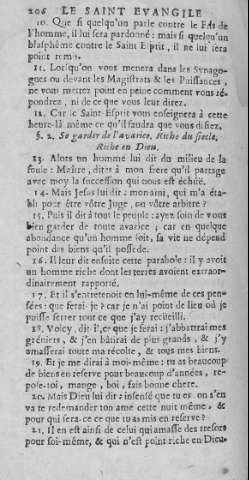 206 LE SAINT EVANGILE
10. Que si quelqu'un parle contre le Fils de
l'homme, il lui sera pardonné : mais si quelqu'un
blasphême contre le Saint Esprit, il ne lui sera
point remis.
11. Lorsqu'on vous menera dans les Synago-
gues ou devant les Magistrats & les Puissances,
ne vous mettez point en peine comment vous ré-
pondrez, ni de ce que vous leur direz.
12. Car le Saint-Esprit vous enseignera à cette
heure-là même ce qu'il faudra que vous disiez.
§. 2. Se garder de l'avarice. Riche du siecle,
Riche en Dieu.
13. Alors un homme lui dit du milieu de la
foule : Maître, dites à mon frere qu'il partage
avec moy la succession qui nous est échûë.
14. Mais Jesus lui dit : mon ami, qui m'a éta-
bli pour être vôtre Juge, ou vôtre arbitre ?
15. Puis il dit à tout le peuple : ayez soin de vous
bien garder de toute avarice ; car en quelque
abondance qu'un homme soit, sa vie ne dépend
point des biens qu'il possede.
16. Il leur dit ensuite cette parabole : il y avoit
un homme riche dont les terres avoient extraor-
dinairement rapporté.
17. Et il s'entretenoit en lui-même de ces pen-
sées : que ferai-je ? car je n'ai point de lieu où je
puisse serrer tout ce que j'ay recueilli.
18. Voicy, dit-il, ce que je ferai : j'abbattrai mes
greniers, & j'en bâtirai de plus grands, & j'y
amasserai toute ma récolte, & tous mes biens.
19. Et je me dirai à moi-même : tu as beaucoup
de biens en reserve pour beaucoup d'années, re-
pose-toi, mange, boi, fais bonne chere.
20. Mais Dieu lui dit : insensé que tu es, on s'en
va te redemander ton ame cette nuit même, &
pour qui sera-ce ce que tu as mis en reserve ?
21. Il en est ainsi de celui qui amasse des tresors
pour soi-même, & qui n'est point riche en Dieu.